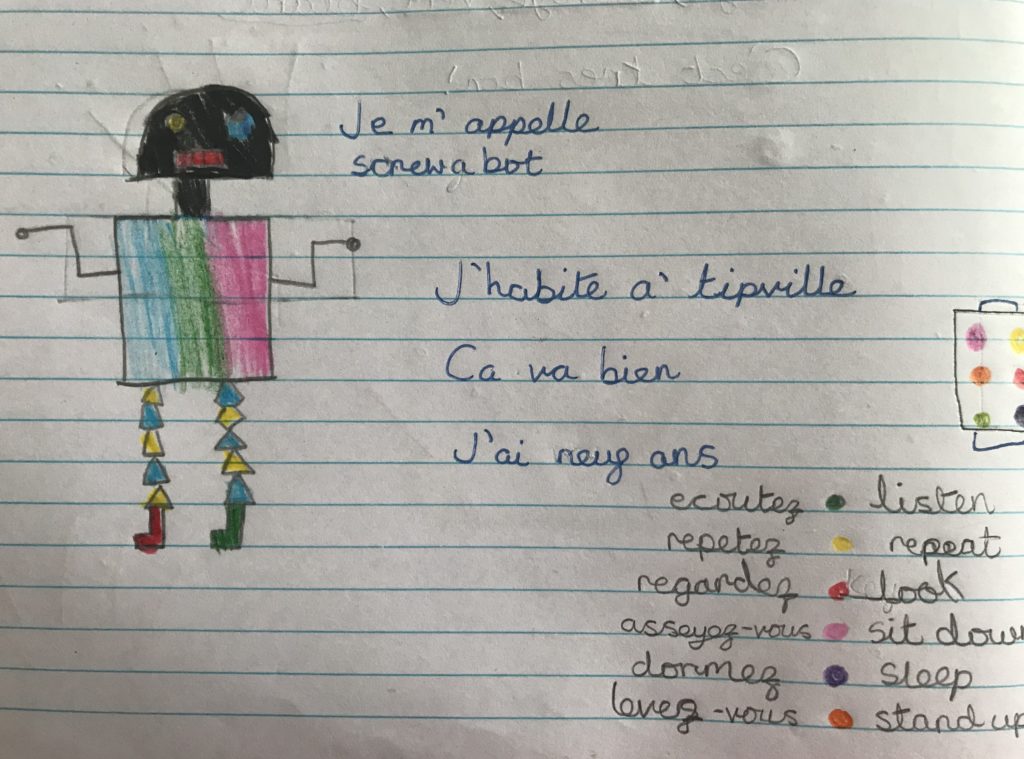 Je m'appelle
screwabot
J'habite à tipville
Ca va bien
J'ai neuf ans
ecoutez listen
repetez repeat
regardez look
asseyez-vous sit down
dormez sleep
levez-vous stand up